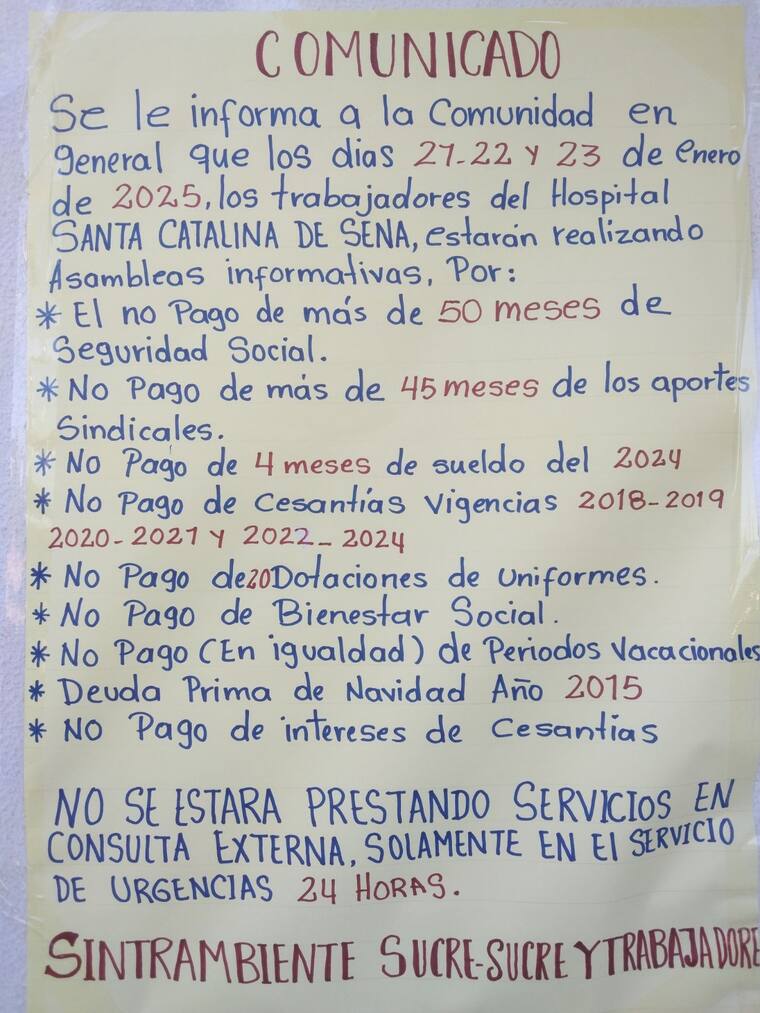 COMUNICADO
Se le informa a la Comunidad en
general que los dias 21-22 Y 23 de enero
de 2025, los trabajadores del Hospital
SANTA CATALINA DE SENA, estarán realizando
Asambleas informativas, Por:
* El no Pago de más de 50 meses de
Seguridad Social.
* No Pago de más de 45 meses de los aportes
Sindicales.
* No Pago de 4 meses de sueldo del 2024
* No Pago de Cesantías Vigencias 2018-2019
2020-2021 Y 2022-2024
* No Pago de 20 Dotaciones de Uniformes.
* No Pago de Bienestar Social.
* No Pago (En igualdad) de Periodos Vacacionales
* Deuda Prima de Navidad Año 2015
* NO Pago de intereses de Cesantías
NO SE ESTARA PRESTANDO SERVICIOS EN
CONSULTA EXTERNA, SOLAMENTE EN El SERVICIO
DE URGENCIAS 24 HORAS.
SINTRAMBIENTE SUCRE-SUCRE Y TRABAJADORE